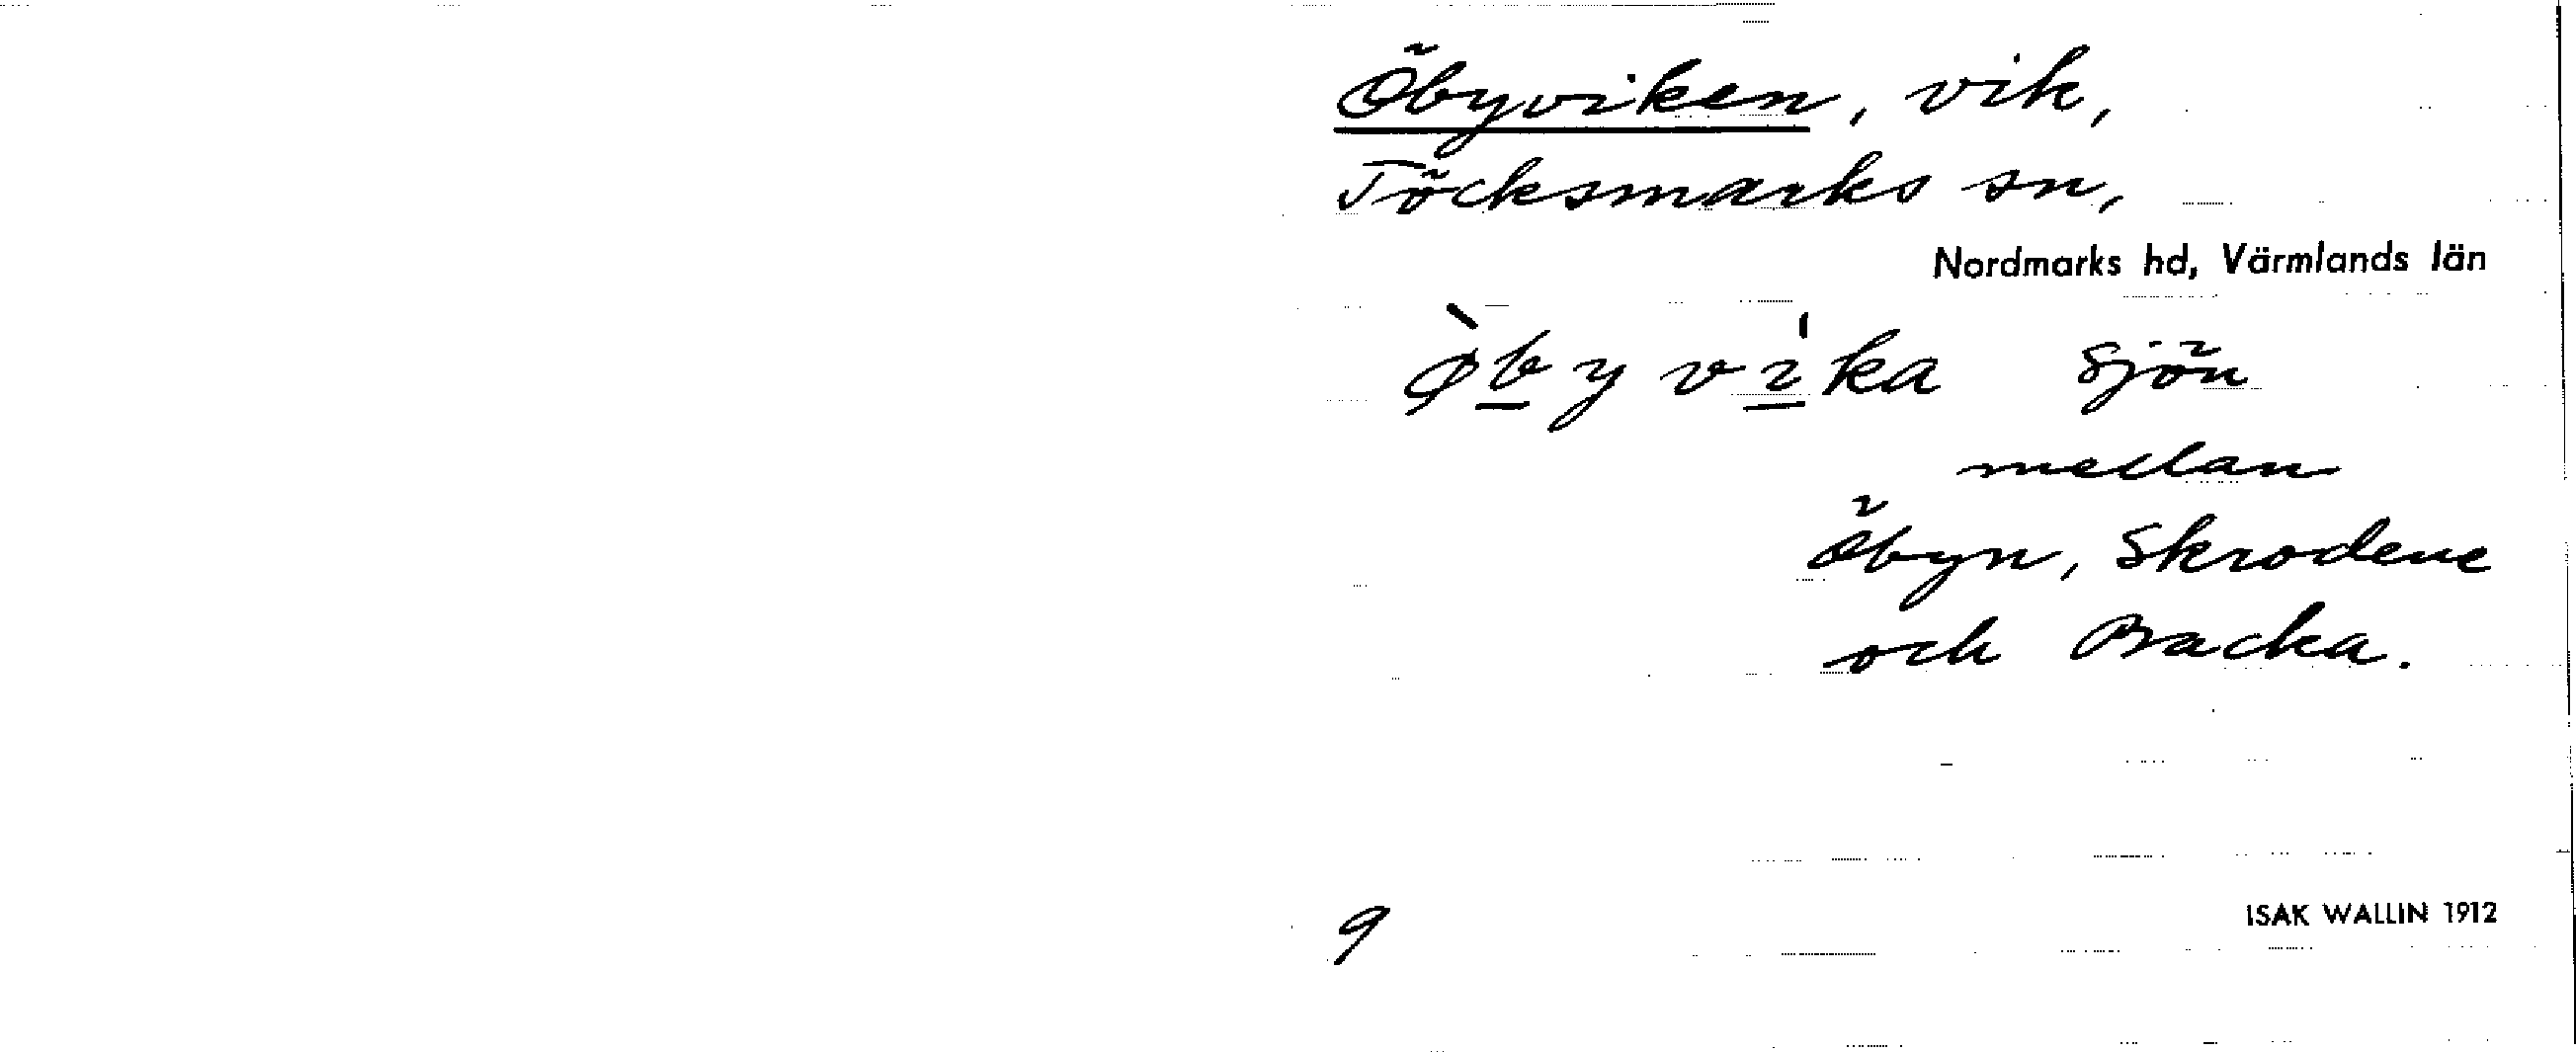 Öbyviken, vik,
Töcksmarks sn,
Nordmarks hd, Värmlands län
ø̀byvi̍ka sjön
mellan
Öbyn, Skrodene
och Backa.
9
ISAK WALLIN 1912